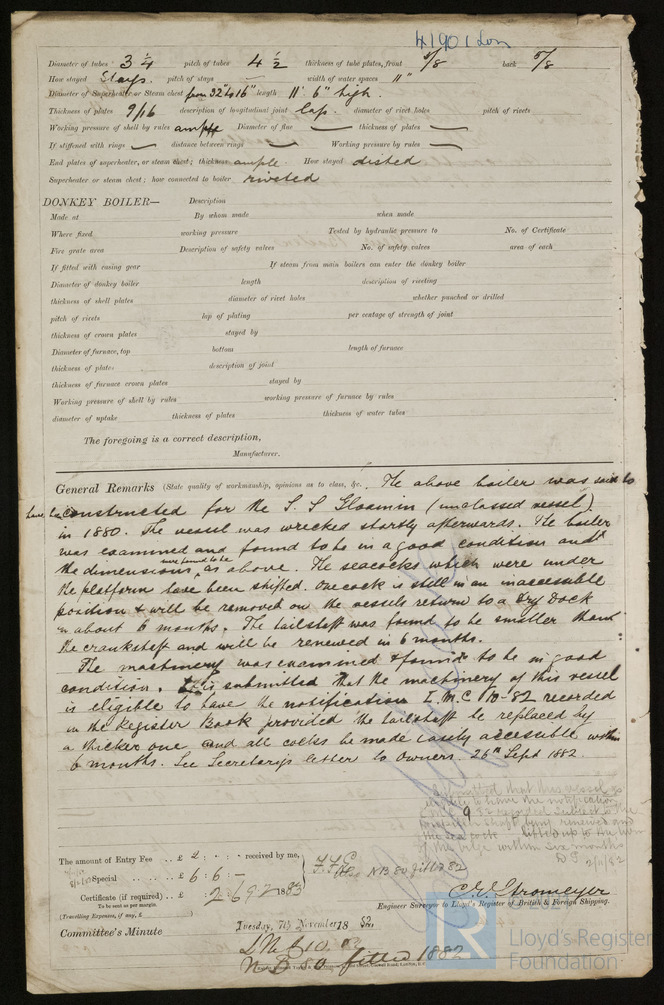 41901 Lon
Diameter of tubes 3 1/4 pitch of tubes 4 1/2 thickness of tube plates, front 5/8 back 5/8
How stayed Stays. pitch of stays — width of water spaces 11"
Diameter of Superheater or Steam chest from 32" to 16" length 11' 6" high.
Thickness of plates 9/16 description of longitudinal joint Lap. diameter of rivet holes pitch of rivets
Working pressure of shell by rules ample Diameter of flue — thickness of plates —
If stiffened with rings — distance between rings — Working pressure by rules —
End plates of superheater, or steam chest; thickness ample. How stayed dished
Superheater or steam chest; how connected to boiler riveted
DONKEY BOILER— Description
Made at By whom made when made
Where fixed working pressure Tested by hydraulic pressure to No. of Certificate
Fire grate area Description of safety valves No. of safety valves area of each
If fitted with easing gear If steam from main boilers can enter the donkey boiler
Diameter of donkey boiler length description of riveting
thickness of shell plates diameter of rivet holes whether punched or drilled
pitch of rivets lap of plating per centage of strength of joint
thickness of crown plates stayed by
Diameter of furnace, top bottom length of furnace
thickness of plates description of joint
thickness of furnace crown plates stayed by
Working pressure of shell by rules working pressure of furnace by rules
diameter of uptake thickness of plates thickness of water tubes
The foregoing is a correct description,
Manufacturer.
General Remarks (State quality of workmanship, opinions as to class, &c. The above boiler was said to
have be constructed for the S. S Gloamin (unclassed vessel)
in 1880. The vessel was wrecked shortly afterwards. The boiler
was examined and found to be in a good condition and
the dimensions were found to be as above. The seacocks which were under
the platform have been shifted. One cock is still in an inaccessible
position & will be removed on the vessels return to a Dry Dock
in about 6 months. The tailshaft was found to be smaller than
the crankshaft and will be renewed in 6 months.
The machinery was examined & found to be in good
condition. It is submitted that the machinery of this vessel
is eligible to have the notification L.M.C 10-82 recorded
in the Register Book provided the tailshaft be replaced by
a thicker one and all cocks be made easily accessible within
6 months. See Secretary's letter to Owners. 26th Sept 1882.
Submitted that this vessel is
eligible to have the notification
recorded subject to the
shaft being renewed and
the sea cocks lifted up to the turn
of the bilge within six months
2/11/82
The amount of Entry Fee .. £ 2 : - : - received by me,
Special .. £ 6 : 6 : -
Certificate (if required) .. £ 2.6.9.2 1883
To be sent as per margin.
(Travelling Expenses, if any, £
NB 80 fitted 82
C. E. Stromeyer
Engineer Surveyor to Lloyd's Register of British & Foreign Shipping.
Committee's Minute Tuesday, 7th November 18 82.
LMC 10.82
NB 80 fitted 1882
LR
© 2021
Lloyd's Register
Foundation